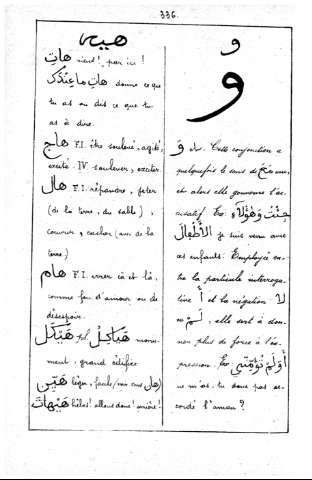 336.
هيه
هات viens!, par ici!
هات ما عندك donne ce que
tu as ou dis ce que tu
as à dire.
هاج F.I. être soulevé, agité,
excité. IV. soulever, exciter.
هال F.I. répandre, jeter
(de la terre, du sable);
couvrir, cacher (avec de la
terre.)
هام F.I. errer çà et là
comme fou d'amour ou de
désespoir.
هيكل pl. هياكل monu-
ment, grand édifice
هين léger, facile
هيهات hélas! allons donc! arrière!
و
و
و et. Cette conjonction a
quelquefois le sens de avec,
et alors elle gouverne l'ac-
cusatif. Ex. جئت وهؤلاء
الأطفال je suis venu avec
ces enfants. Employée en-
tre la particule interroga-
tive أ et la négation لا
ou لم, elle sert à don-
ner plus de force à l'ex-
pression. Ex. أولم تؤمني
ne m'as-tu donc pas ac-
cordé l'aman?